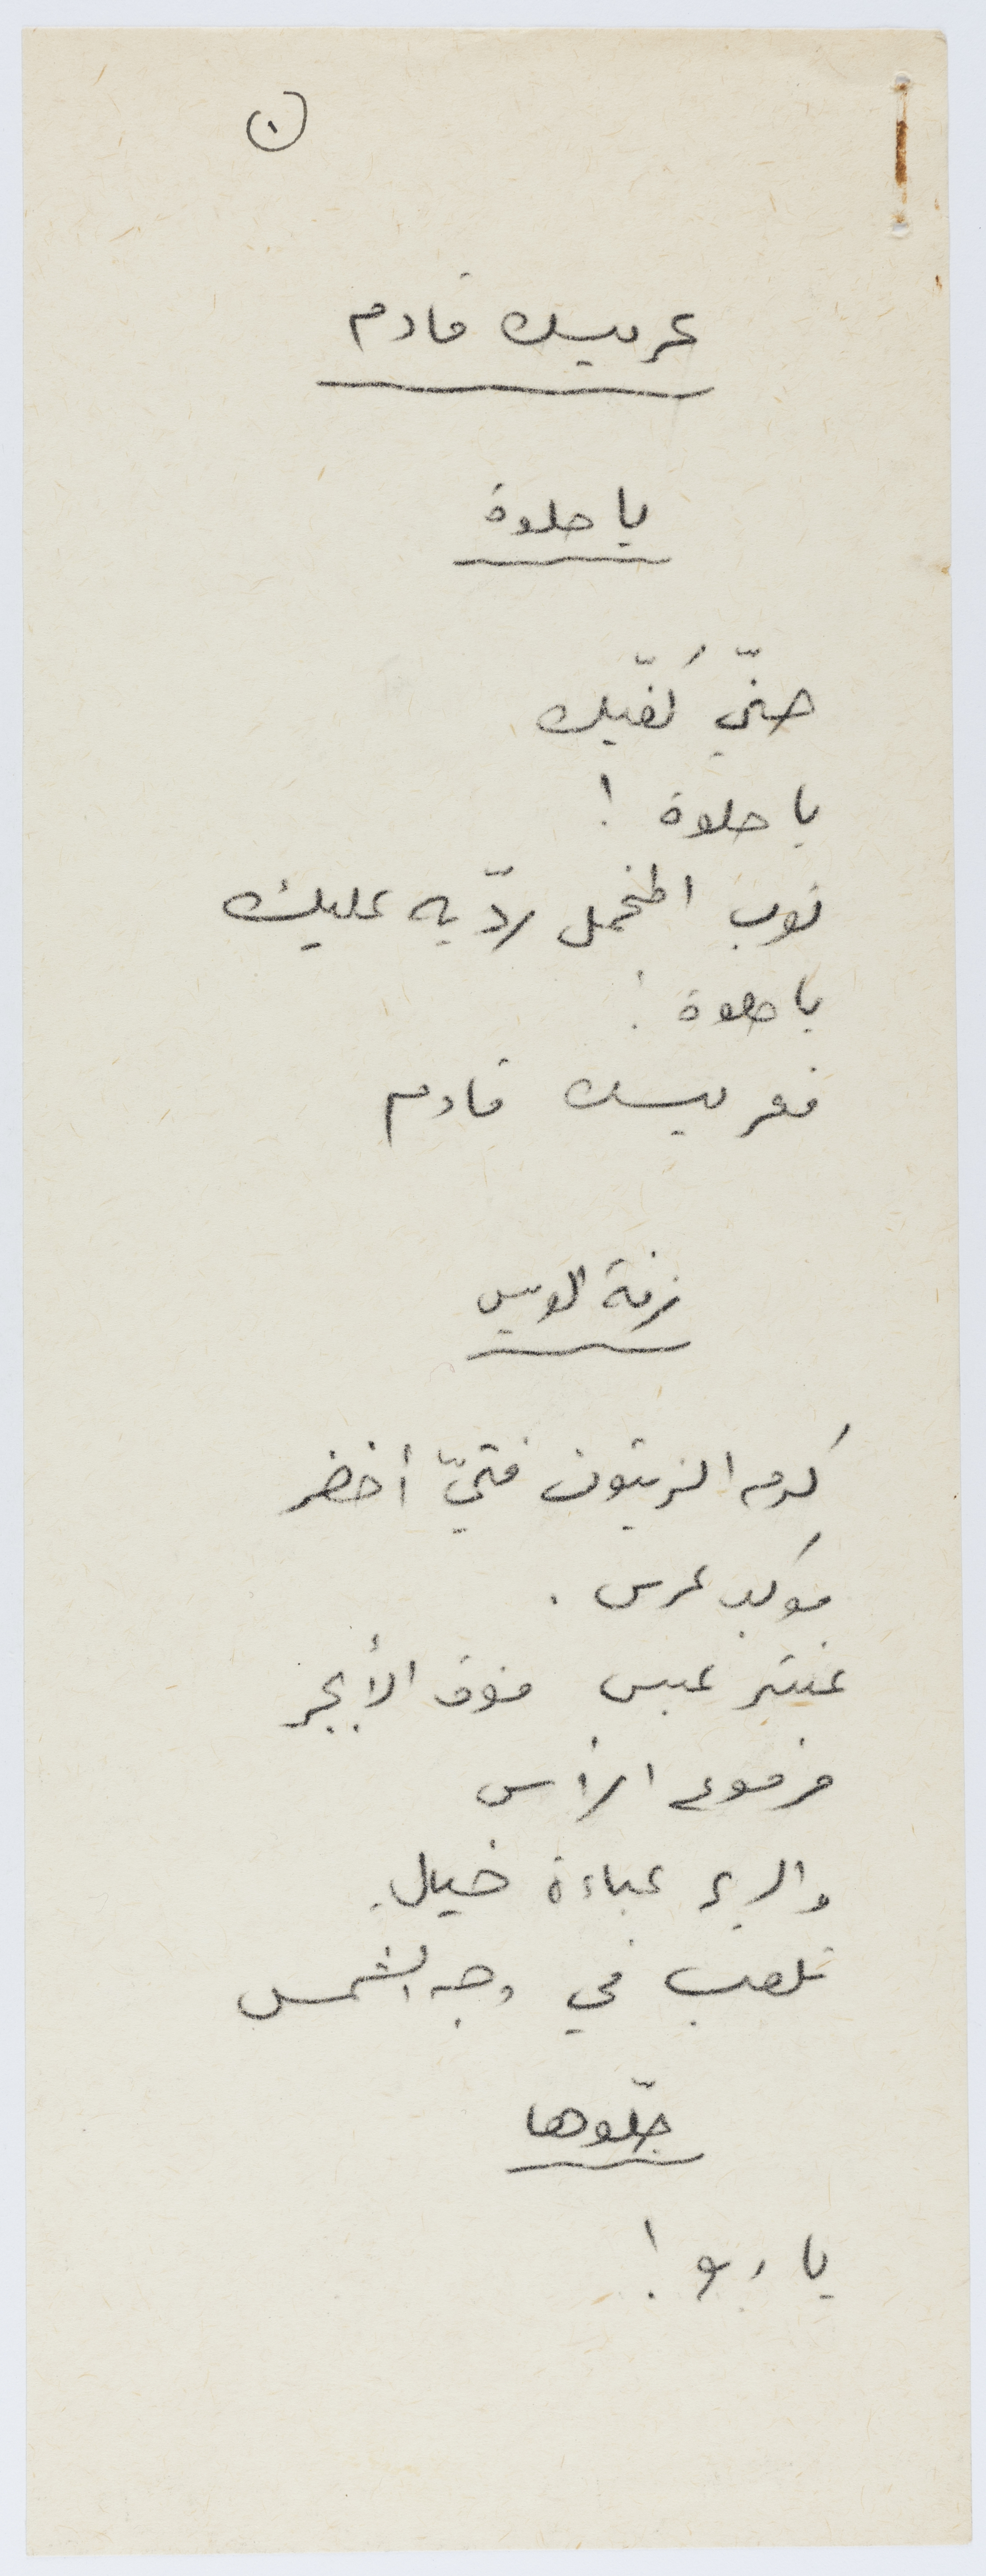 (١)
عريسك قادم
يا حلوة
حنّي كَفّيك
يا حلوة !
ثوب المخمل ردّيه عليك
يا حلوة !
فعريسك قادم
زفة العريس
كرم الزيتون فتيّ أخضر
موكب عرس .
عنتر عبس فوق الأبجر
مرفوع الرأس
والريح عباءة خيال.
تلعب في وجه الشمس
جلّوها
يا ربع !